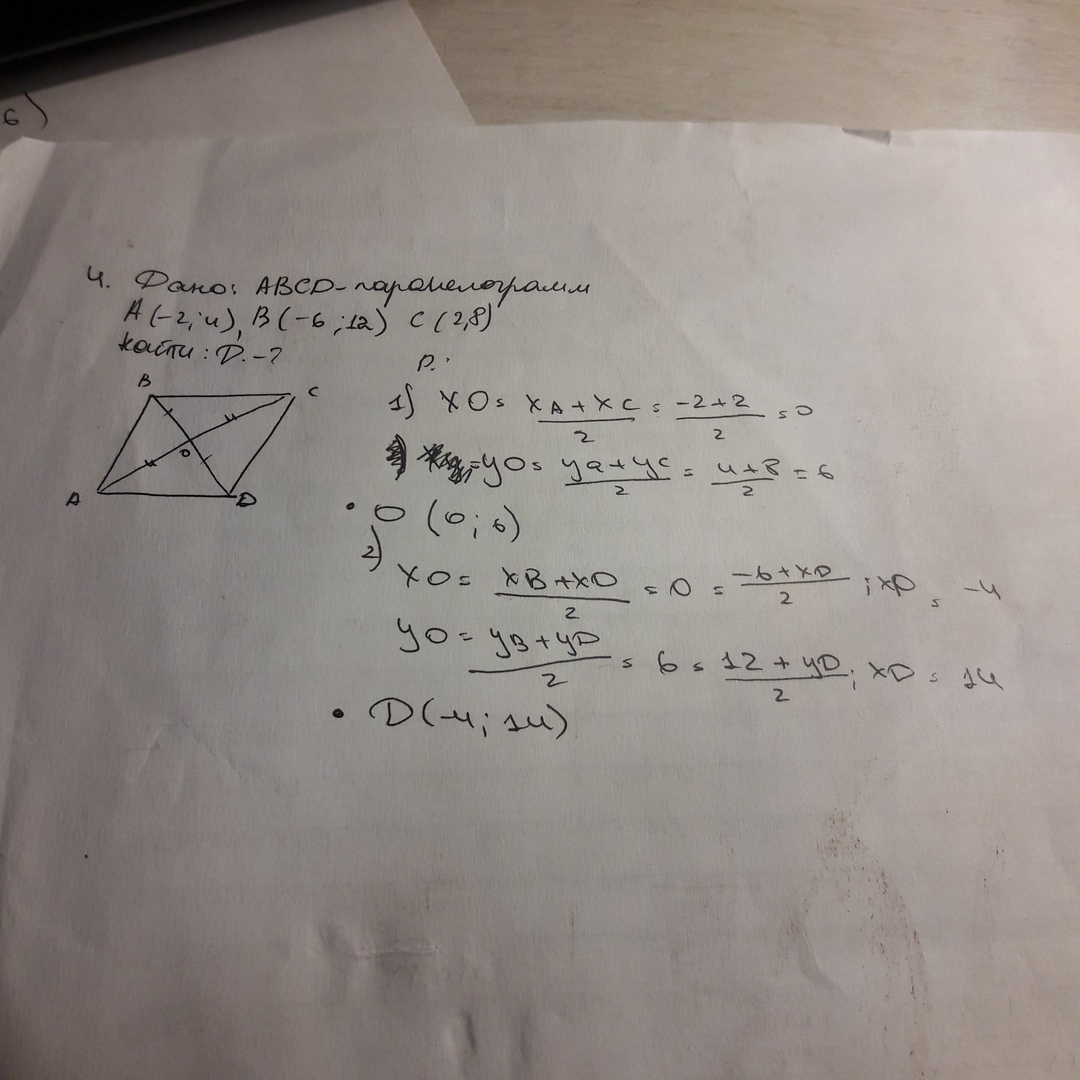 6)
4. Дано: ABCD - паралелограмм
A(-2;4), B(-6;12) C(2,8)
найти: D.-?
Р:
B C
1) XO = (XA + XC)/2 = (-2+2)/2 = 0
= yO = (ya + yc)/2 = (4+8)/2 = 6
O
A D
• O (0; 6)
2)
XO = (XB + XD)/2 = 0 = (-6 + XD)/2 ; XD = -4
yO = (yB + yD)/2 = 6 = (12 + yD)/2 ; XD = 14
• D(-4; 14)